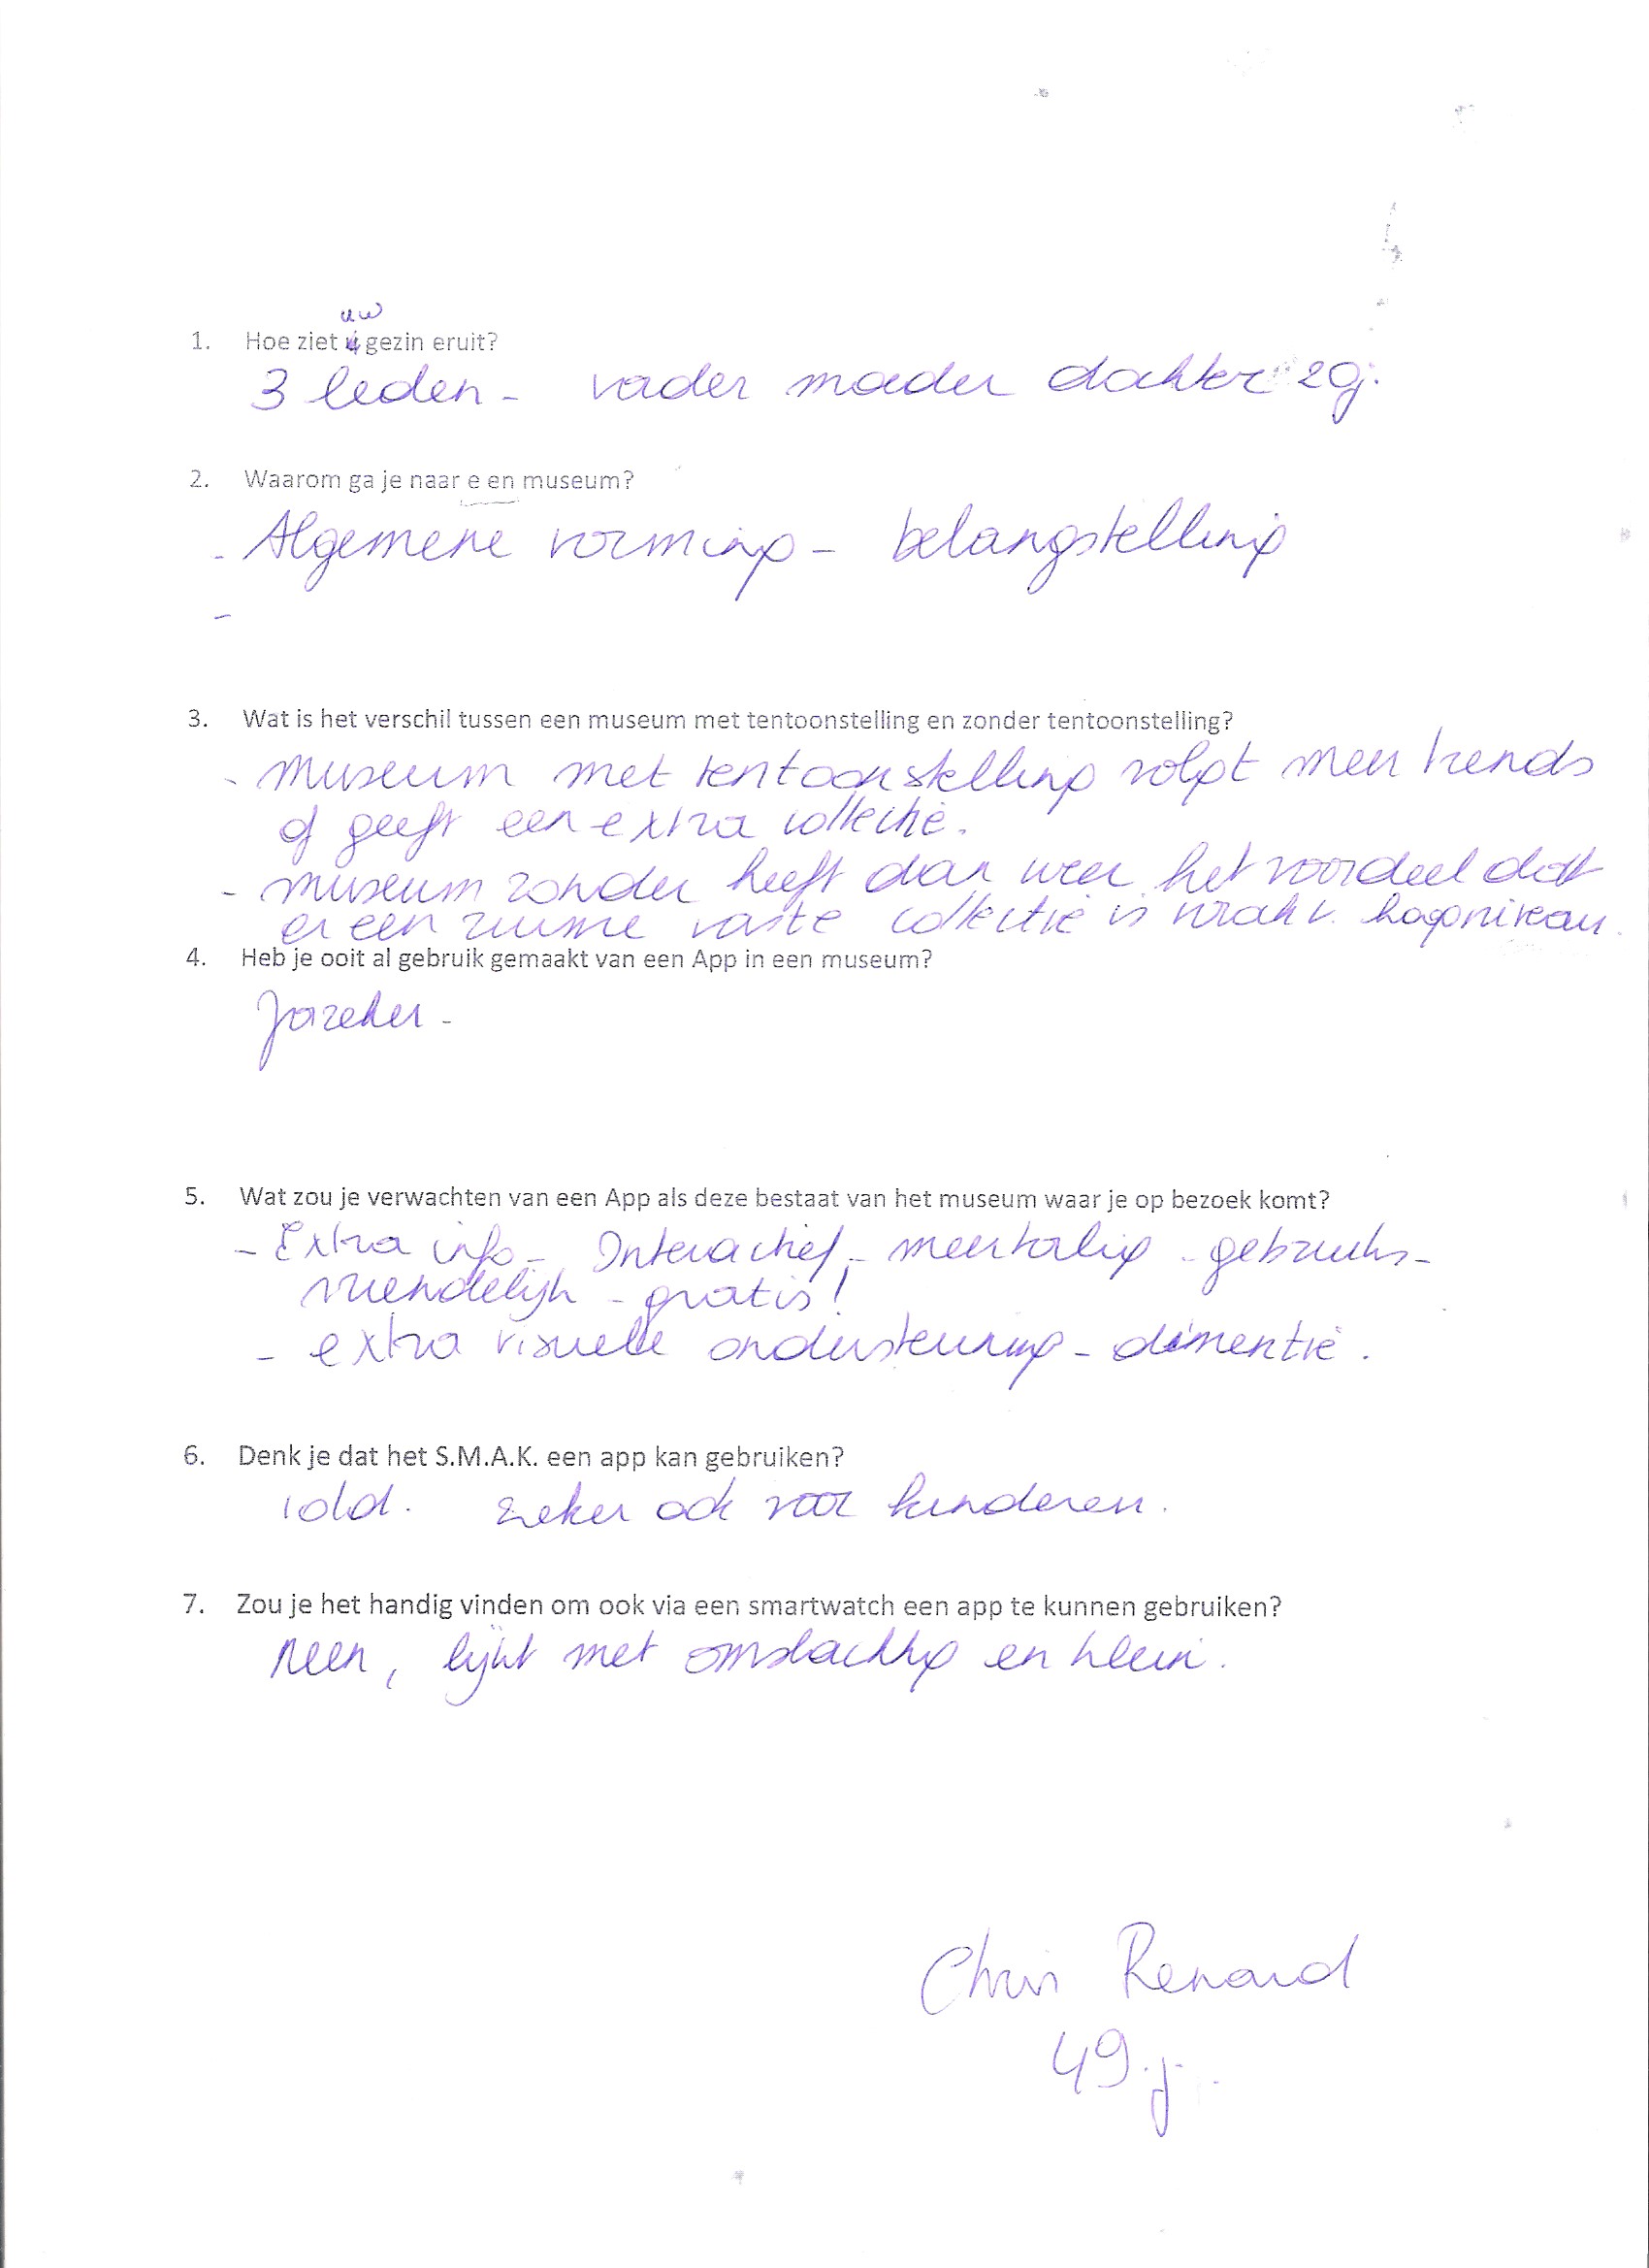 uw
1. Hoe ziet u gezin eruit?
3 leden - vader moeder dochter 20j.
2. Waarom ga je naar e en museum?
- Algemene vorming - belangstelling
-
3. Wat is het verschil tussen een museum met tentoonstelling en zonder tentoonstelling?
- museum met tentoonstelling volgt meer trends
of geeft een extra collectie.
- museum zonder heeft dan weer het voordeel dat
er een ruime vaste collectie is vaak v. hoog niveau.
4. Heb je ooit al gebruik gemaakt van een App in een museum?
Jazeker -
5. Wat zou je verwachten van een App als deze bestaat van het museum waar je op bezoek komt?
- Extra info - Interactief - meertalig - gebruiks-
vriendelijk - gratis!
- extra visuele ondersteuning - dimentie.
6. Denk je dat het S.M.A.K. een app kan gebruiken?
zeker ook voor kinderen.
7. Zou je het handig vinden om ook via een smartwatch een app te kunnen gebruiken?
Neen, lijkt met omslachtig en klein.
Chris Renard
49 j.